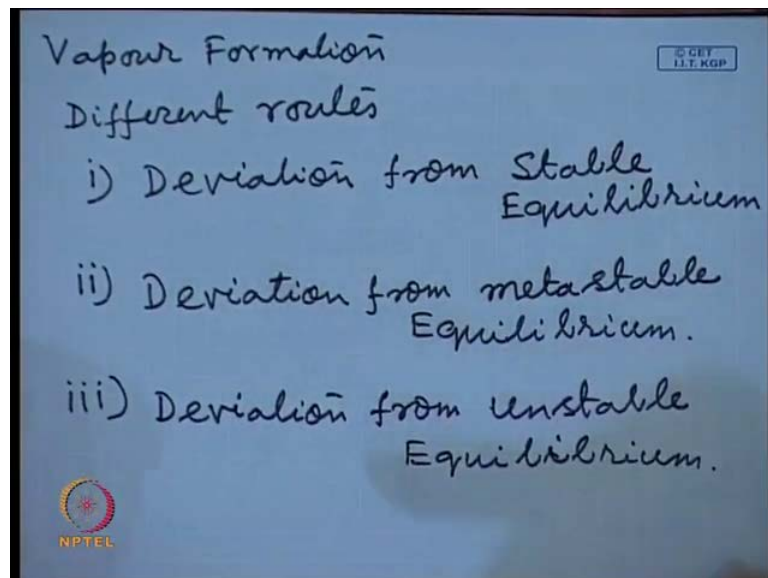 Vapour Formation
© CET
I.I.T. KGP
Different routes
i) Deviation from Stable
Equilibrium
ii) Deviation from metastable
Equilibrium.
iii) Deviation from unstable
Equilibrium.
NPTEL